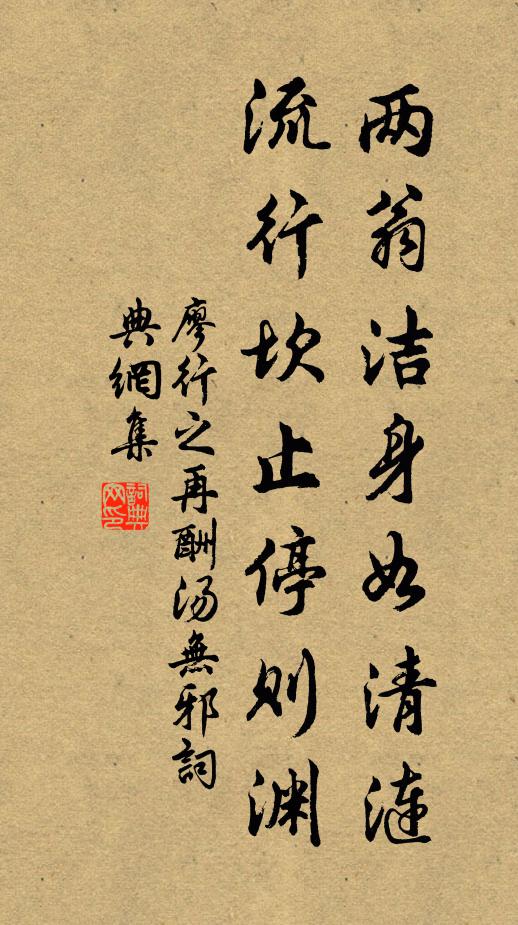 两翁洁身如清涟
流行坎止停则渊
廖行之再酬汤無邪詞
典網集
詞典
网印